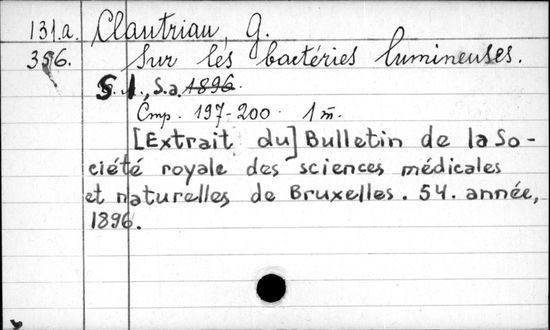 131.a. Clautriau, G.
356. Sur les bactéries lumineuses.
S. l., S.a. 1896.
Стр. 197-200. 1 m.
[Extrait du] Bulletin de la So-
ciété royale des sciences médicales
et naturelles de Bruxelles. 54. année,
1896.